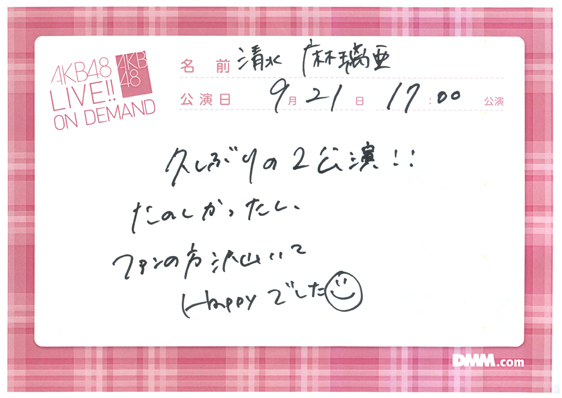 AKB48
LIVE!!
ON DEMAND
AKB
48
名前 清水 麻璃亜
公演日 9月21日 17:00 公演
久しぶりの2公演!!
たのしかったし、
ファンの方沢山いて
Happyでした
DMM.com